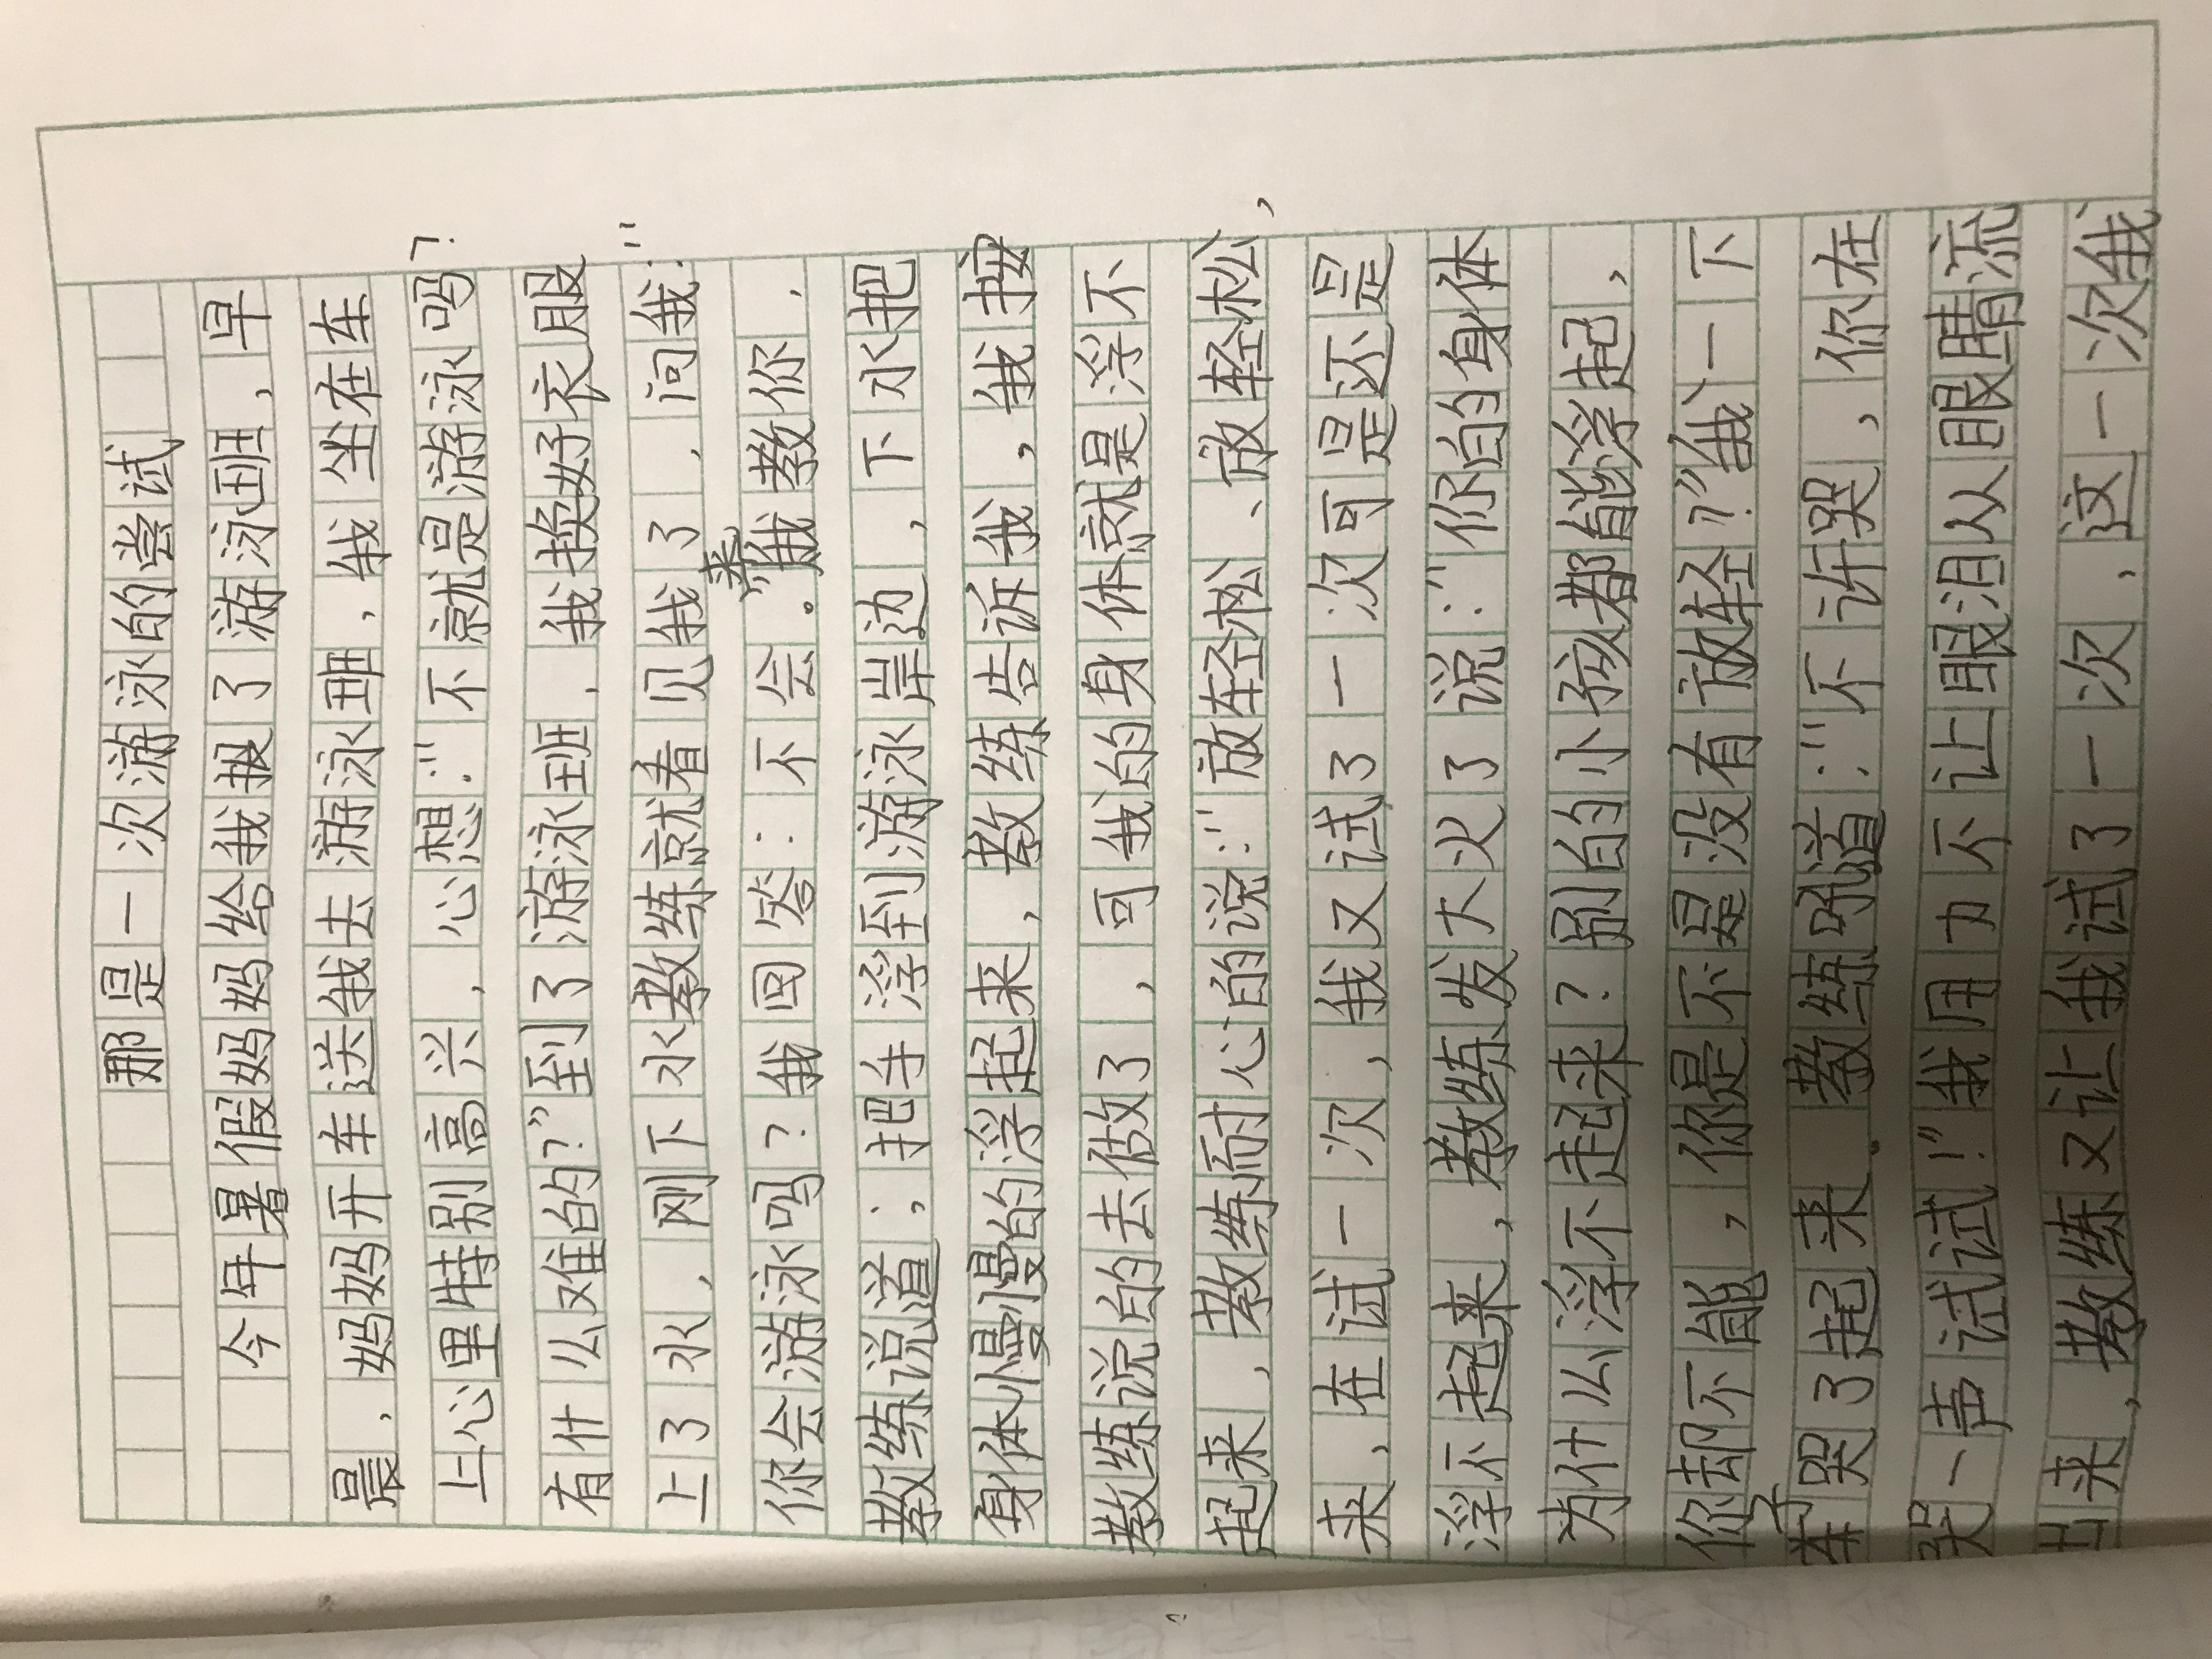 那是一次游泳的尝试
今年暑假妈妈给我报了游泳班，早
晨，妈妈开车送我去游泳班，我坐在车
上心里特别高兴，心想：“不就是游泳吗？
有什么难的？”到了游泳班，我换好衣服
上了水，刚下水教练就看见我了，问我：“
你会游泳吗？我回答：不会。“来我教你，
教练说道；把手浮到游泳岸边，下水把
身体慢慢的浮起来，教练告诉我，我按
教练说的去做了，可我的身体就是浮不
起来，教练耐心的说：“放轻松、放轻松，
来，在试一次，我又试了一次可是还是
浮不起来，教练发大火了说：“你的身体
为什么浮不起来？别的小孩都能浮起，
你却不能，你是不是没有放轻？”我一下
子哭了起来。教练吼道：“不许哭，你在
哭一声试试！”我用力不让眼泪从眼睛流
出来，教练又让我试了一次，这一次我